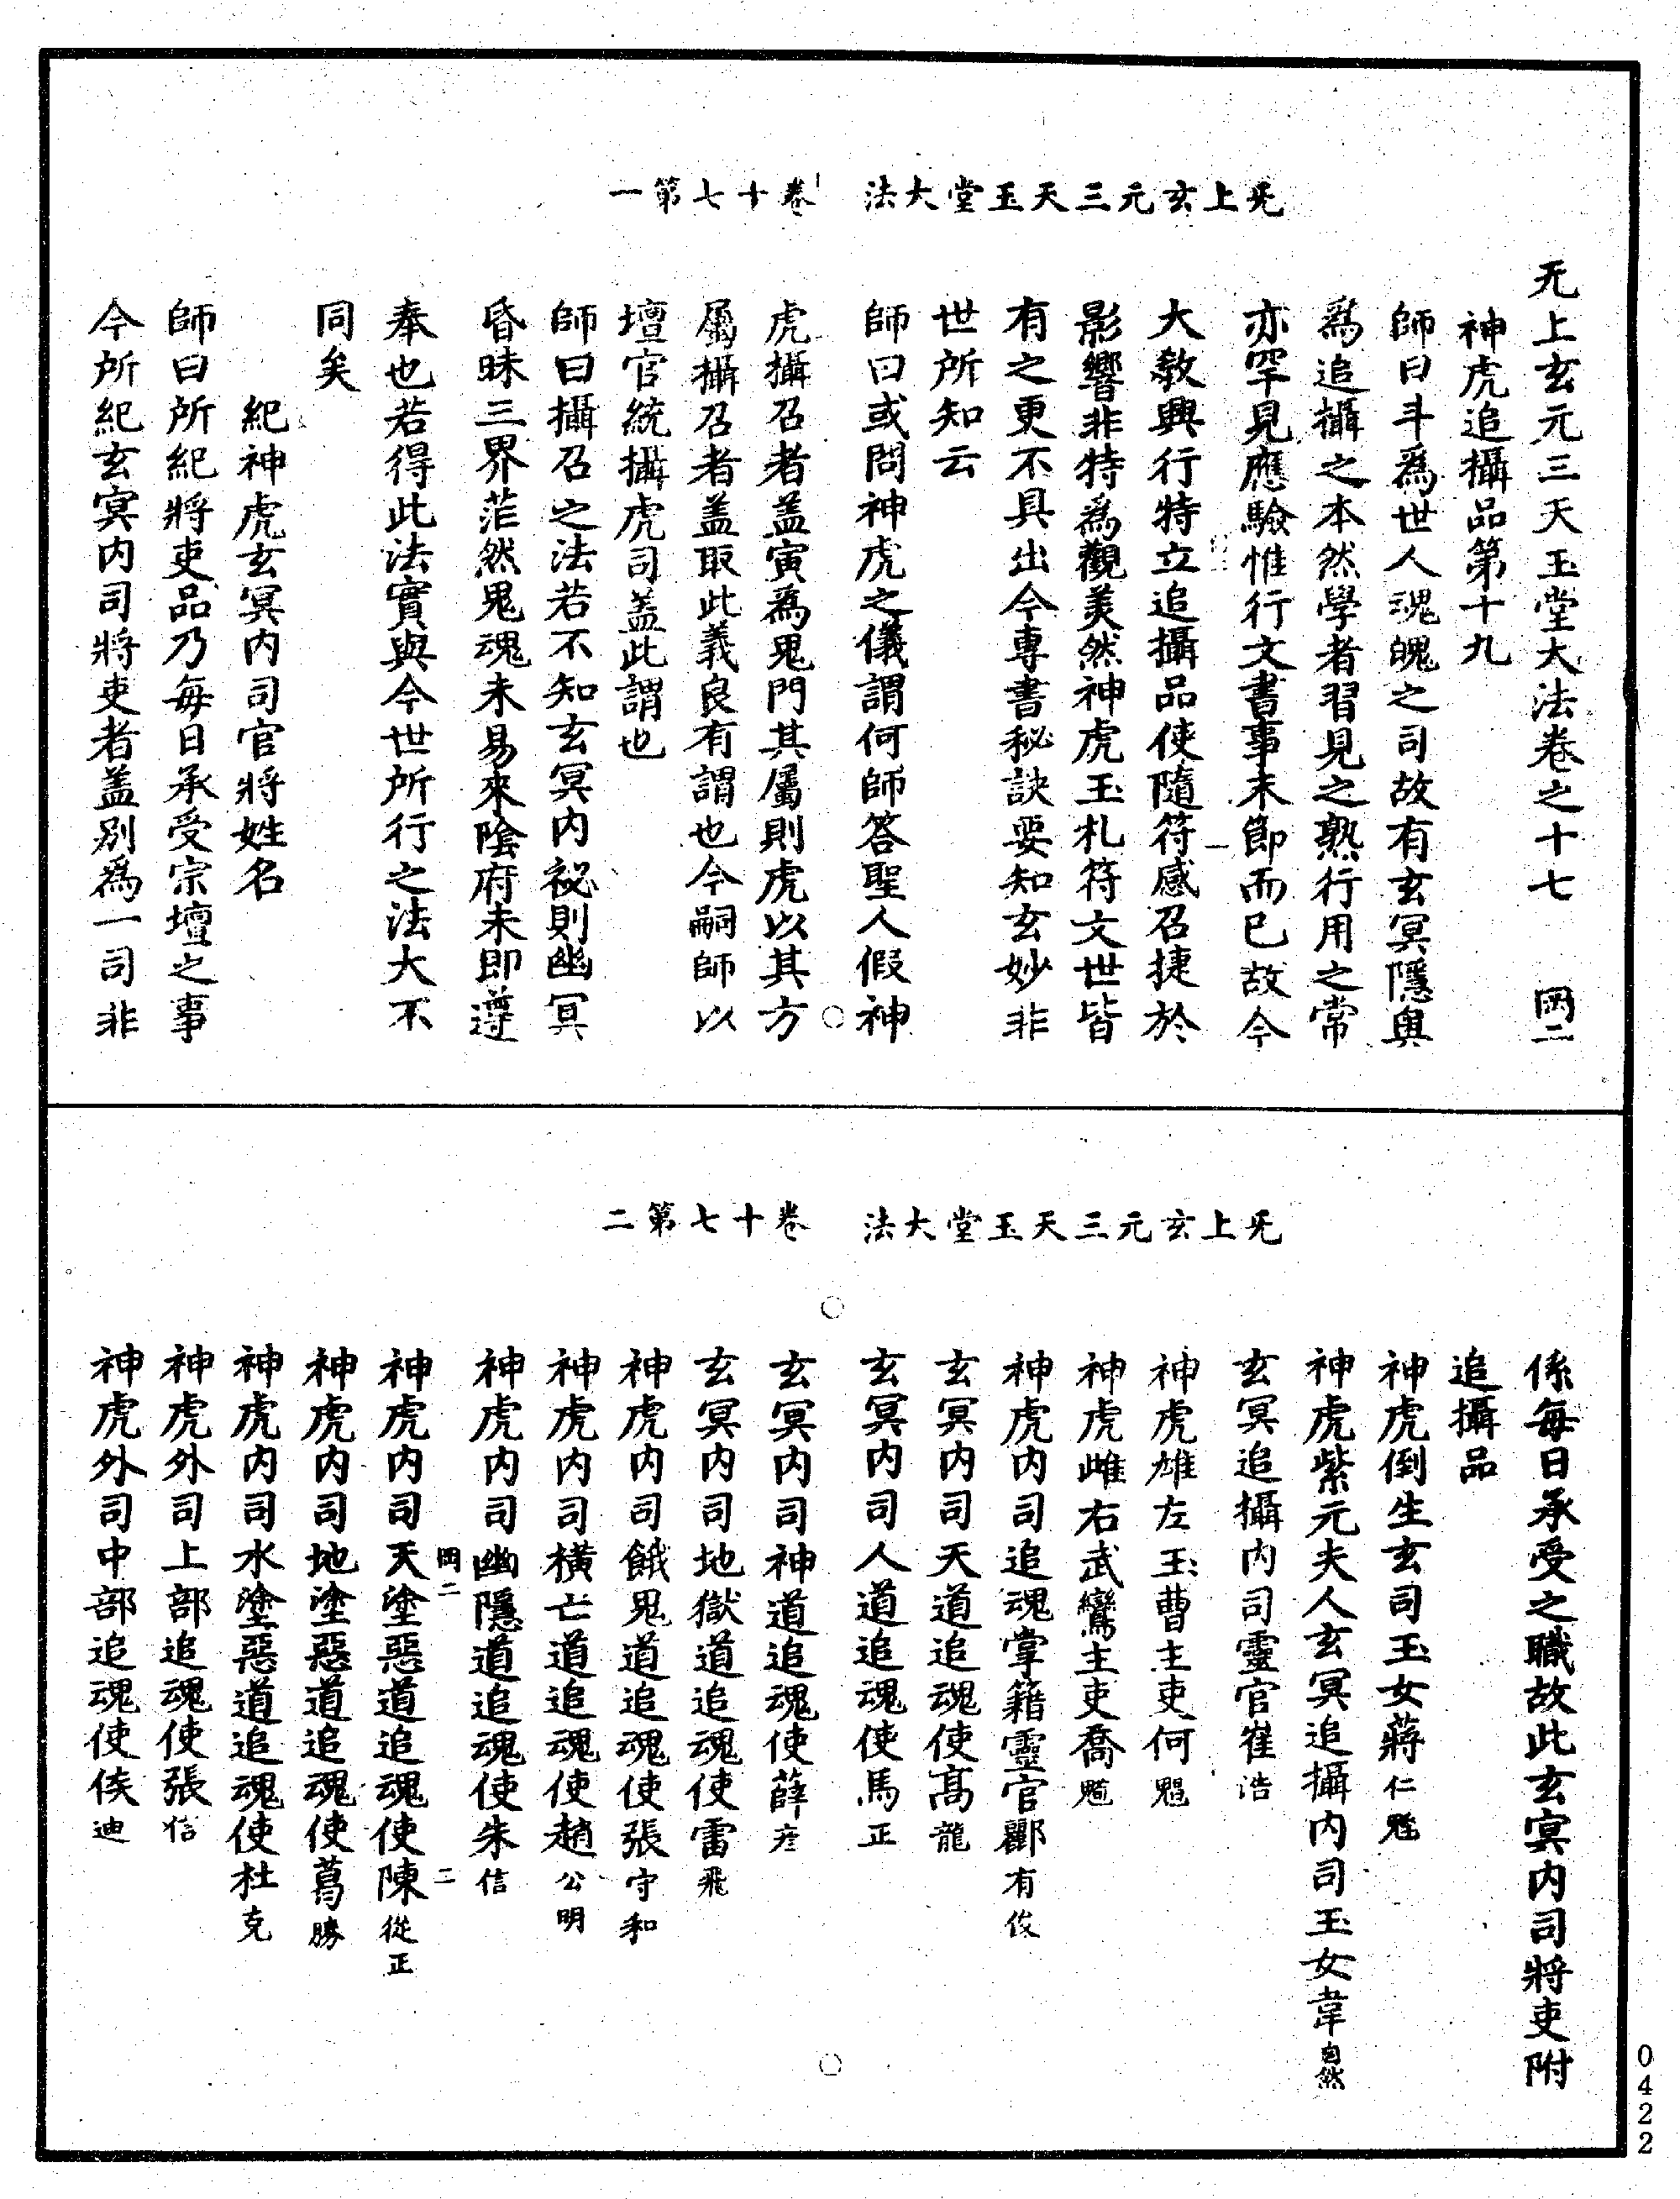 无上玄元三天玉堂大法　卷十七第一
无上玄元三天玉堂大法卷之十七　岡二
神虎追攝品第十九
師曰斗爲世人魂魄之司故有玄冥隱奧
爲追攝之本然學者習見之熟行用之常
亦罕見應驗惟行文書事末節而已故今
大教興行特立追攝品使隨符感召捷於
影響非特爲觀美然神虎玉札符文世皆
有之更不具出今專書秘訣要知玄妙非
世所知云
師曰或問神虎之儀謂何師答聖人假神
虎攝召者盖寅爲鬼門其屬則虎以其方
屬攝召者盖取此義良有謂也今嗣師以
壇官統攝虎司盖此謂也
師曰攝召之法若不知玄冥内祕則幽冥
昏昧三界茫然鬼魂未易來陰府未即遵
奉也若得此法實與今世所行之法大不
同矣
紀神虎玄冥内司官將姓名
師曰所紀將吏品乃每日承受宗壇之事
今所紀玄冥内司將吏者盖別爲一司非
无上玄元三天玉堂大法　卷十七第二
係每日承受之職故此玄冥内司將吏附
追攝品
神虎倒生玄司玉女蔣仁魋
神虎紫元夫人玄冥追攝内司玉女韋自然
玄冥追攝内司靈官崔浩
神虎雄左玉曹主吏何
神虎雌右武鸞主吏喬
神虎内司追魂掌籍靈官酈有俊
玄冥内司天道追魂使高龍
玄冥内司人道追魂使馬正
玄冥内司神道追魂使薛彦
玄冥内司地獄道追魂使雷飛
神虎内司餓鬼道追魂使張守和
神虎内司橫亡道追魂使趙公明
神虎内司幽隱道追魂使朱信
岡二　二
神虎内司天塗惡道追魂使陳從正
神虎内司地塗惡道追魂使葛勝
神虎内司水塗惡道追魂使杜克
神虎外司上部追魂使張信
神虎外司中部追魂使侯迪
0422